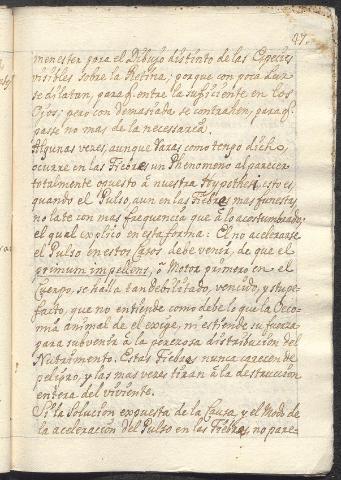 27.
menester para el Dibujo distinto de las Especies
visibles sobre la Retina; porque con poca Luz
se dilatan, para q̃ entre la suficiente en los
Ojos; pero con demasiada se contrahen, para q̃
passe no mas de la necessarea.
Algunas veces, aunque raras como tengo dicho,
ocurre en las Fiebres un Phenomeno al parecer
totalmente opuesto à nuestra Hypothesi, esto es,
quando el Pulso, aun en las Fiebres mas funestas,
no late con mas frequencia que à lo acostumbrado;
el qual explico en esta forma: El no acelerarse
el Pulso en estos Casos debe venir, de que el
primum impellens, ò Motor primero en el
Cuerpo, se halla tan debilitado, vencido, y stupe-
facto, que no entiende como debe lo que la Oeco-
mia animal de el exige, ni estiende su fuerza
para subvenir à la perezosa distribucion del
Nutrimento. Estas Fiebres nunca carecen de
peligro, y las mas veces tiran à la destruccion
entera del viviente.
Si la Solucion expuesta de la Causa, y el Modo de
la aceleracion del Pulso en las Fiebres, no pare-